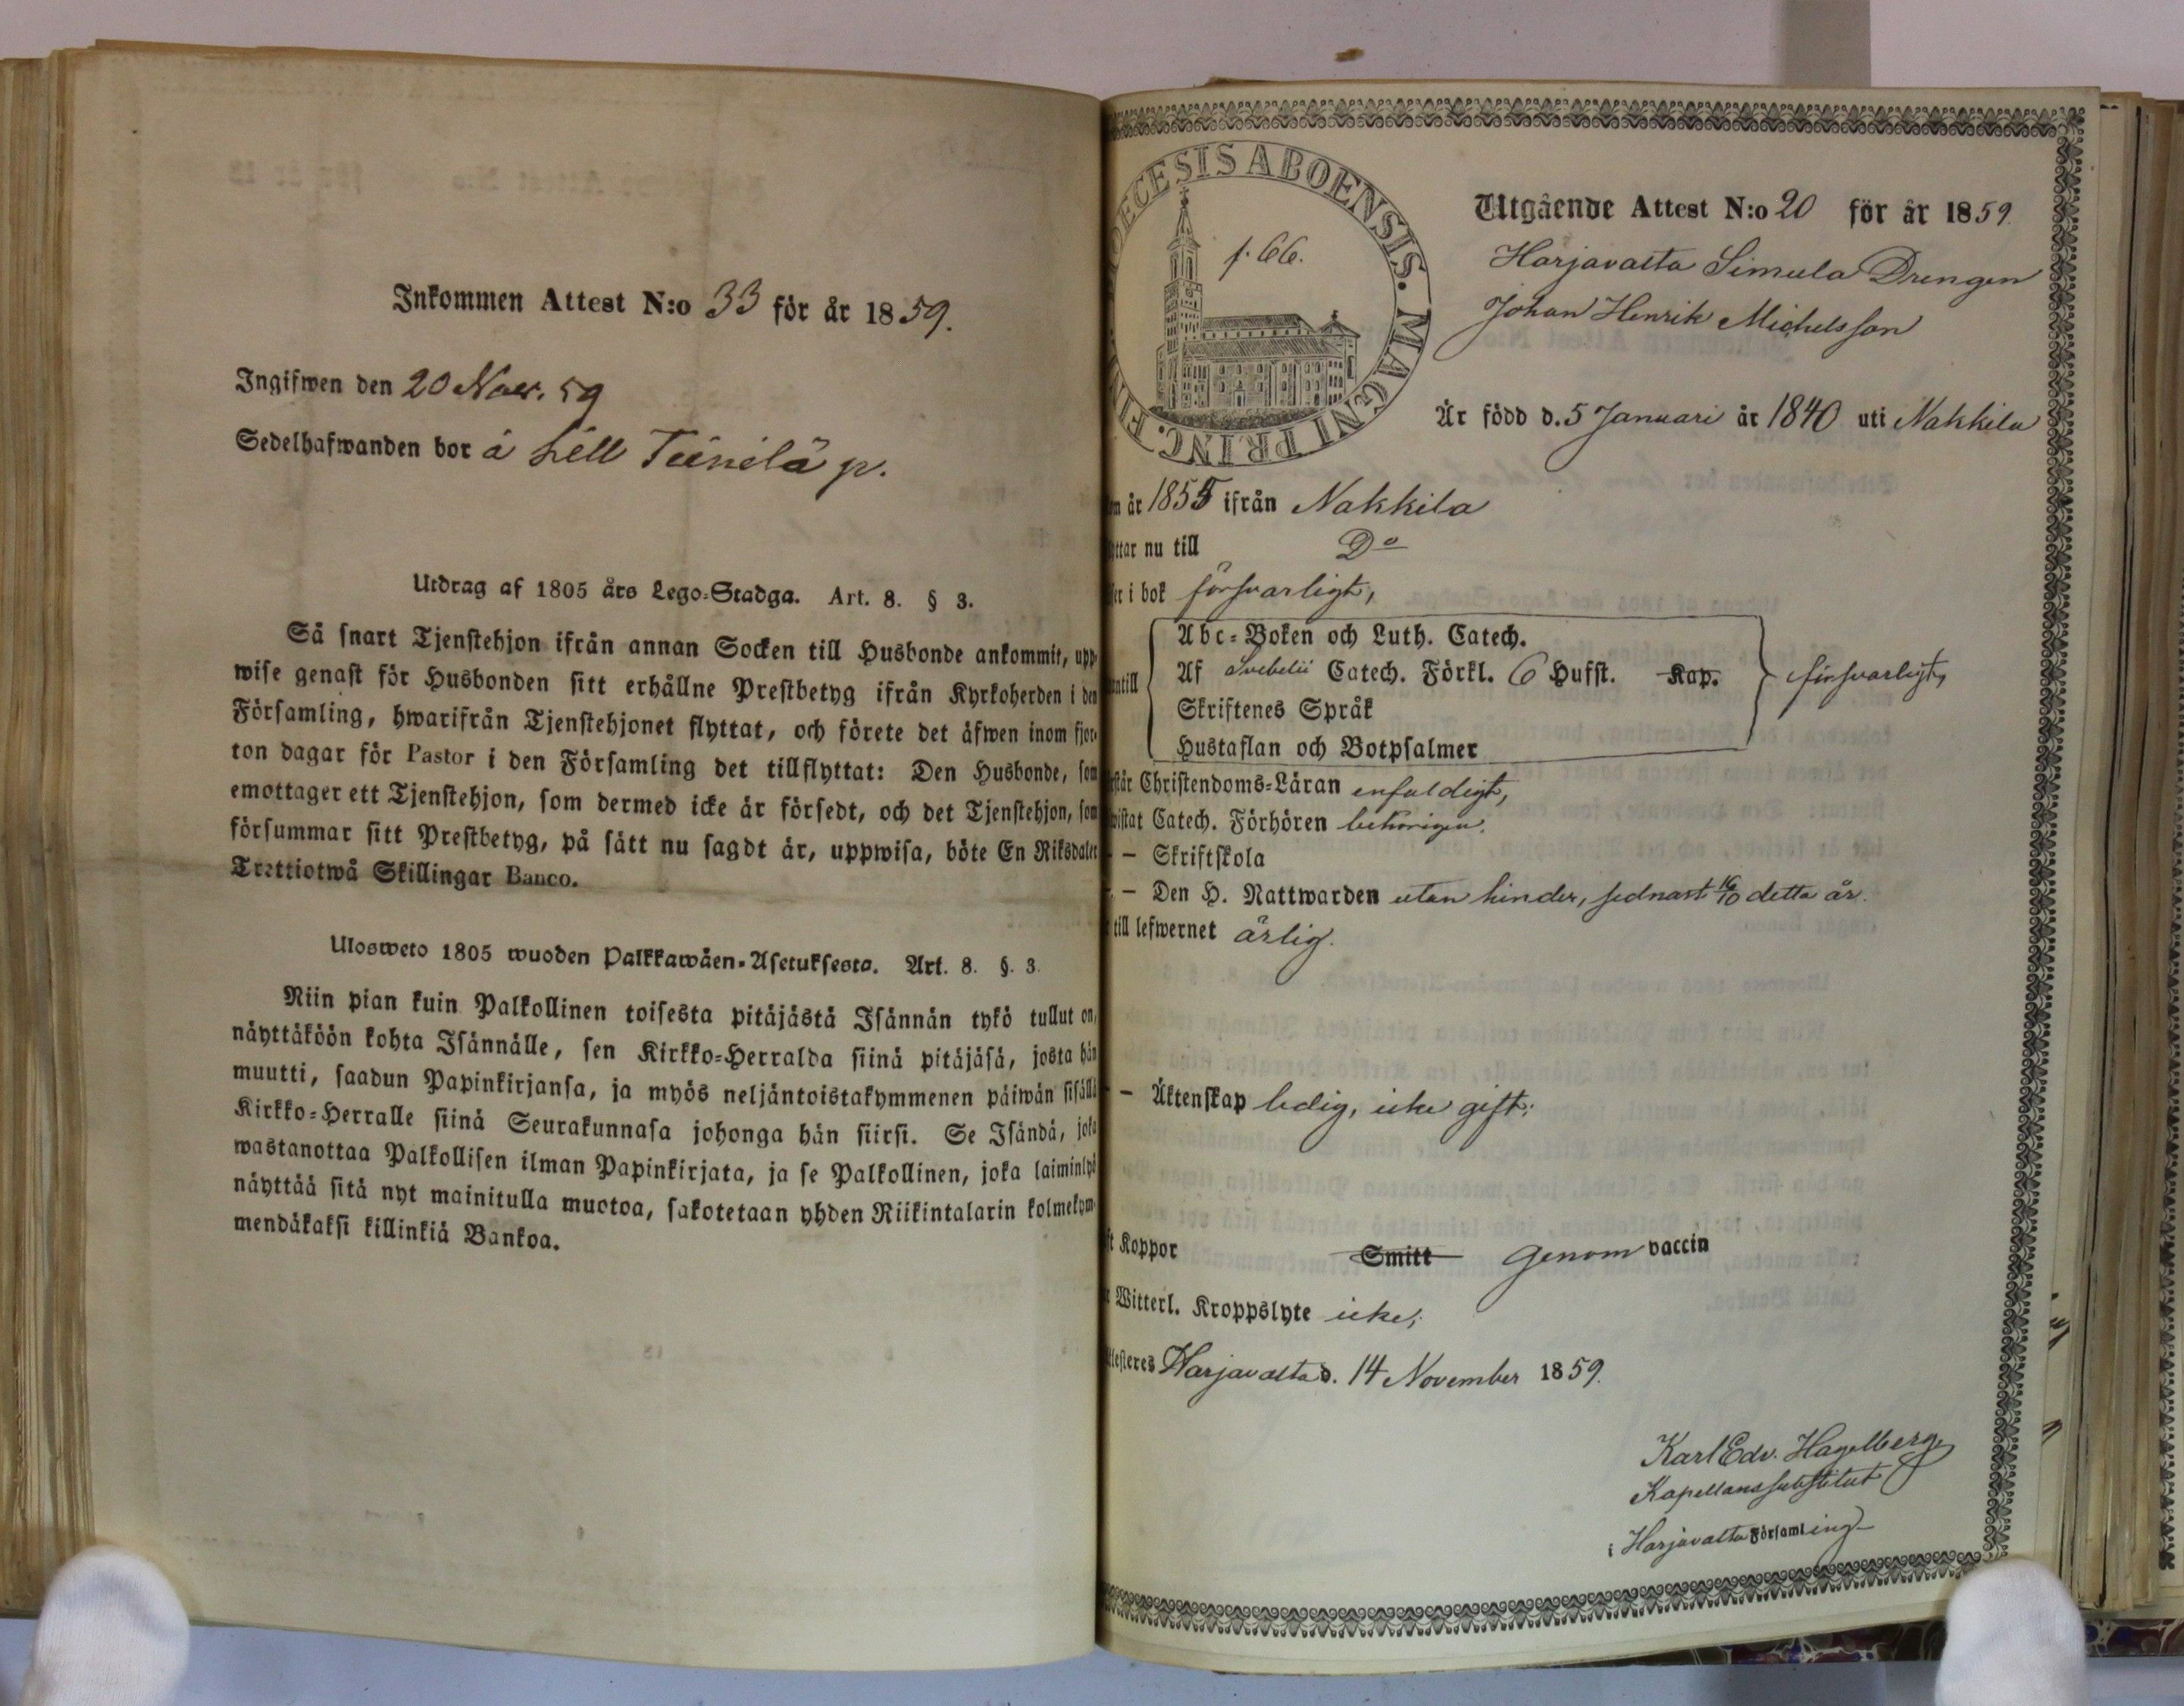 Inkommen Attest N:o 33 för år 1859.
Ingifwen den 20 Nov. 59
Sedelhafwanden bor å Lill Tiinilä p.
Utdrag af 1805 års Lego-Stadga. Art. 8. § 3.
Så snart Tjenstehjon ifrån annan Socken till Husbonde ankommit, upp-
wise genast för Husbonden sitt erhållne Prestbetyg ifrån Kyrkoherden i den
Församling, hwarifrån Tjenstehjonet flyttat, och förete det äfwen inom fjor-
ton dagar för Pastor i den Församling det tillflyttat: Den Husbonde, som
emottager ett Tjenstehjon, som dermed icke är försedt, och det Tjenstehjon, som
försummar sitt Prestbetyg, på sätt nu sagdt är, uppwisa, böte En Riksdaler
Trettiotwå Skillingar Banco.
Ulosweto 1805 wuoden Palkkawäen-Asetuksesta. Art. 8. §. 3.
Niin pian kuin Palkollinen toisesta pitäjästä Isännän tykö tullut on,
näyttäköön kohta Isännälle, sen Kirkko-Herralda siinä pitäjäsä, josta hän
muutti, saadun Papinkirjansa, ja myös neljäntoistakymmenen päiwän sisällä
Kirkko-Herralle siinä Seurakunnasa johonga hän siirsi. Se Isändä, joka
wastanottaa Palkollisen ilman Papinkirjata, ja se Palkollinen, joka laiminlyö
näyttää sitä nyt mainitulla muotoa, sakotetaan yhden Riikintalarin kolmekym-
mendäkaksi killinkiä Bankoa.
OECESIS ABOENSIS. MAGNI PRINC. FIN
f. 66.
Utgående Attest N:o 20 för år 1859.
Harjavalta Simula Drengen
Johan Henrik Michelsson
Är född d. 5 Januari år 1840 uti Nakkila
m år 1855 ifrån Nakkila
ttar nu till Do
er i bok försvarligt,
entill
Abc-Boken och Luth. Catech.
Af Svebelii Catech. Förkl. 6 Hufst. Kap.
Skriftenes Språk
Hustaflan och Botpsalmer
försvarligt,
står Christendoms-Läran enfaldigt,
wistat Catech. Förhören behörigen.
— Skriftskola
— Den H. Nattwarden utan hinder, sednast 16/10 detta år.
till lefwernet ärlig.
— Äktenskap ledig, icke gift;
ft Koppor Smitt genom vaccin
Witterl. Kroppslyte icke;
ttesteres Harjavalta d. 14 November 1859.
Karl Edv. Hagelberg
Kapellanssubstitut
i Harjavalta Församling